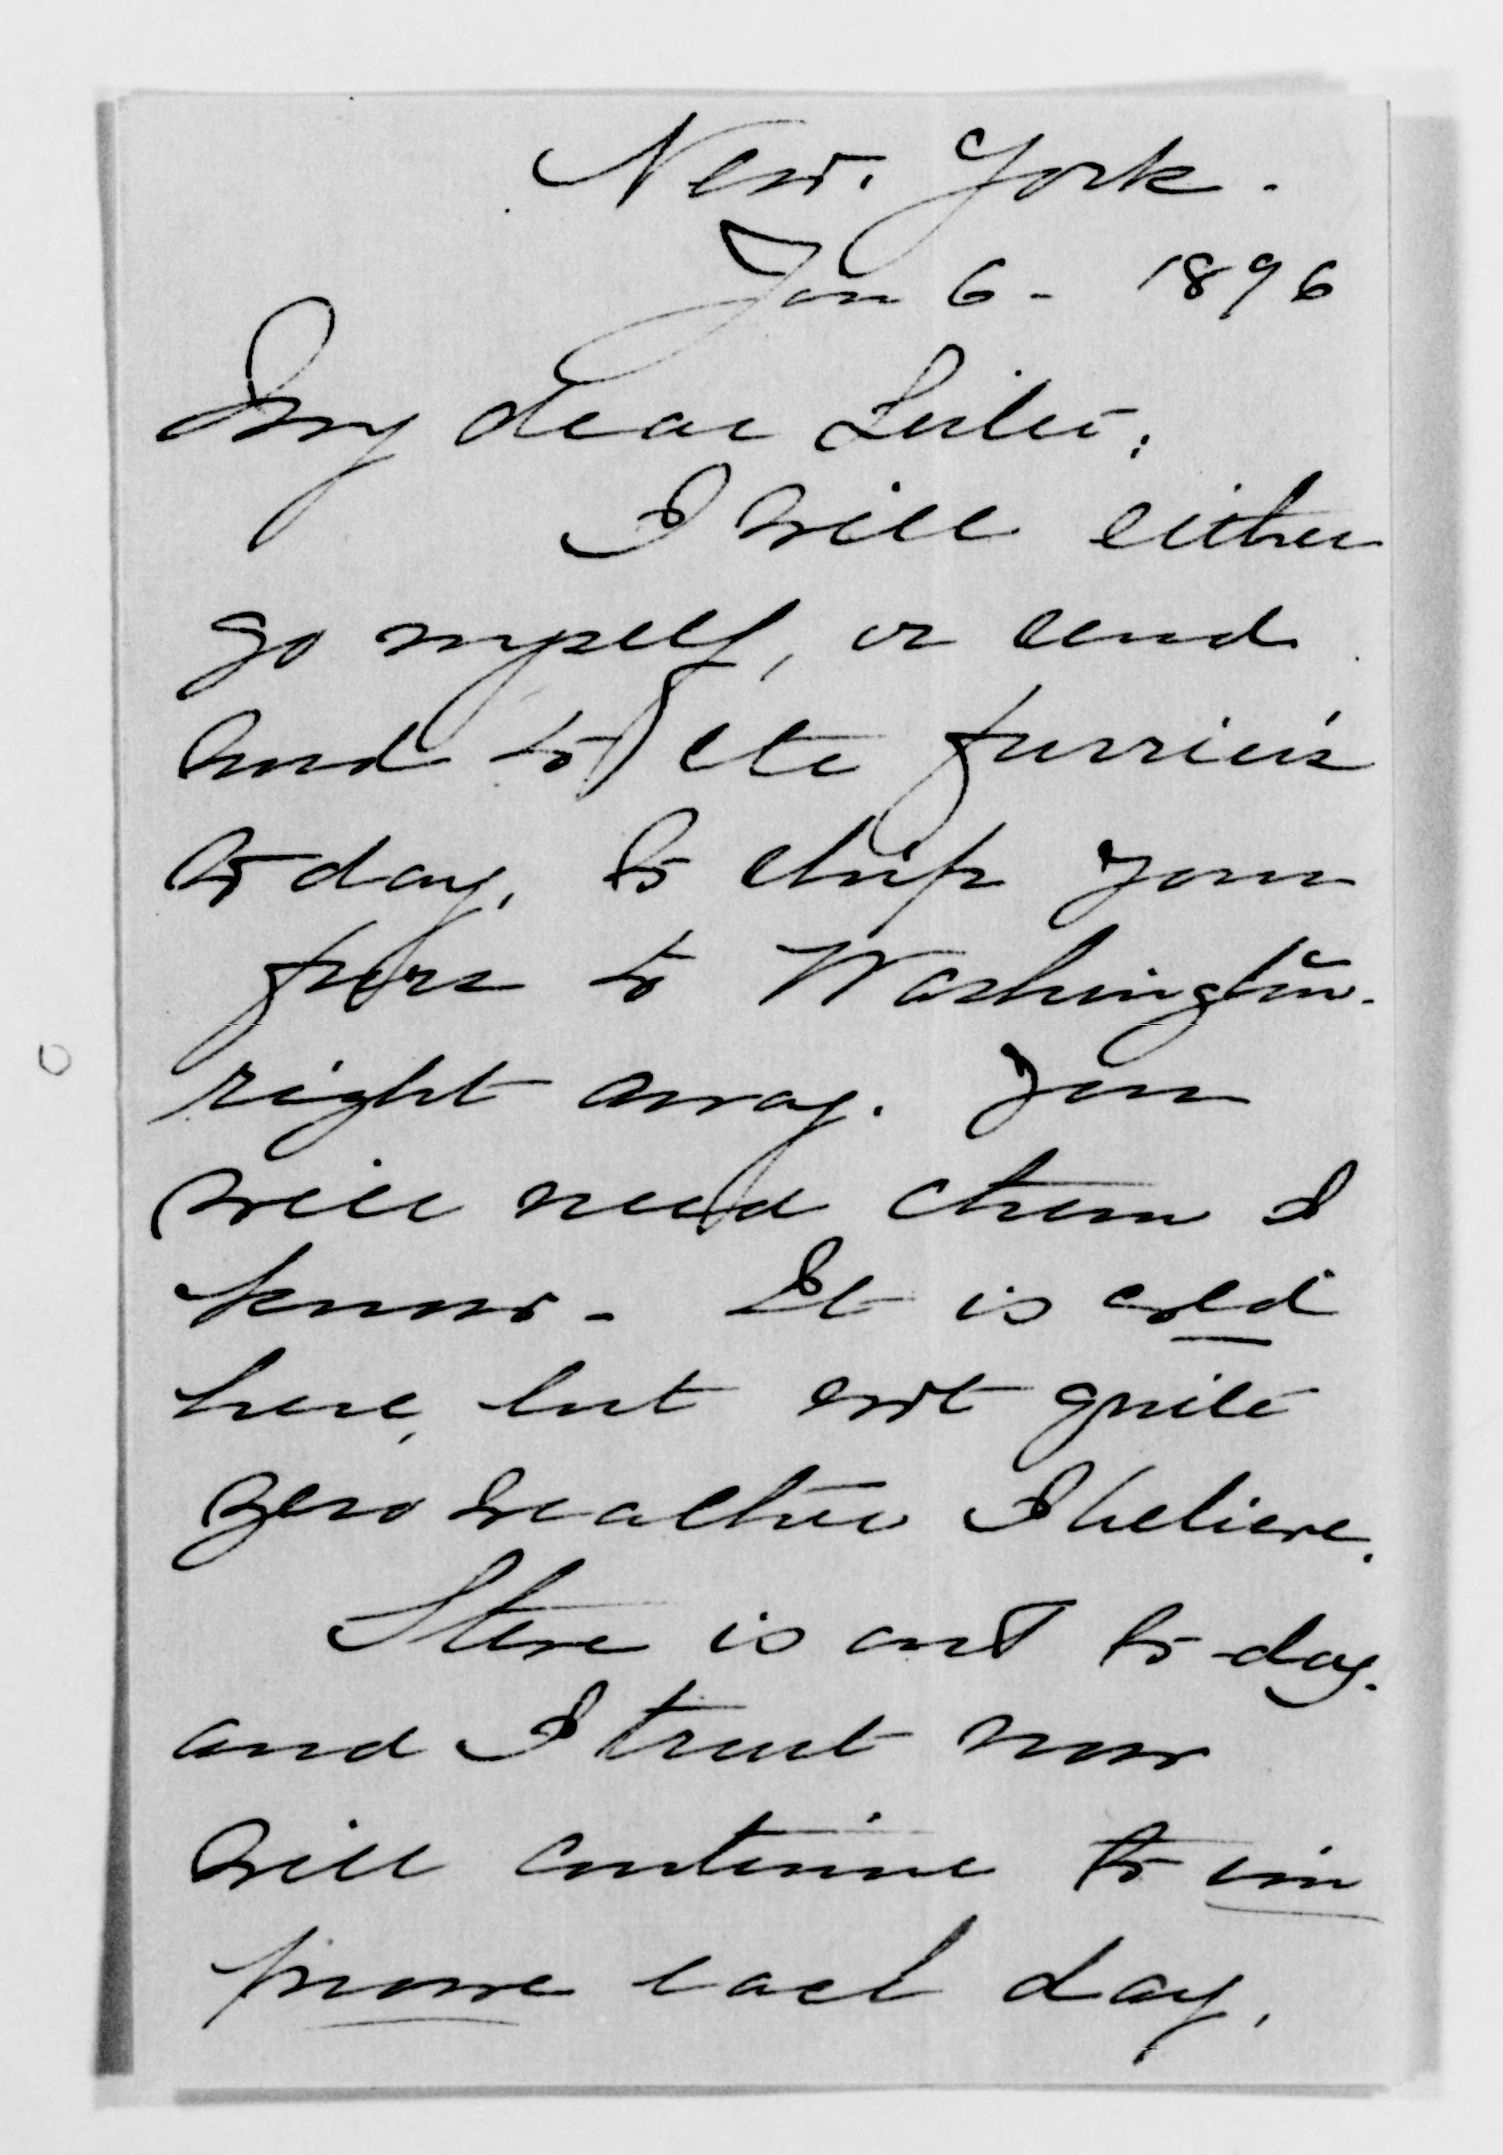 New. York.
Jan 6 - 1896
My dear Sister:
I will either
go myself, or send
word to the furrier's
to day, to ship your
furs to Washington.
right away. You
will need them I
know - It is cold
here, but not quite
zero weather I believe.
Steve is out to-day.
and I trust now
will continue to im
prove each day,